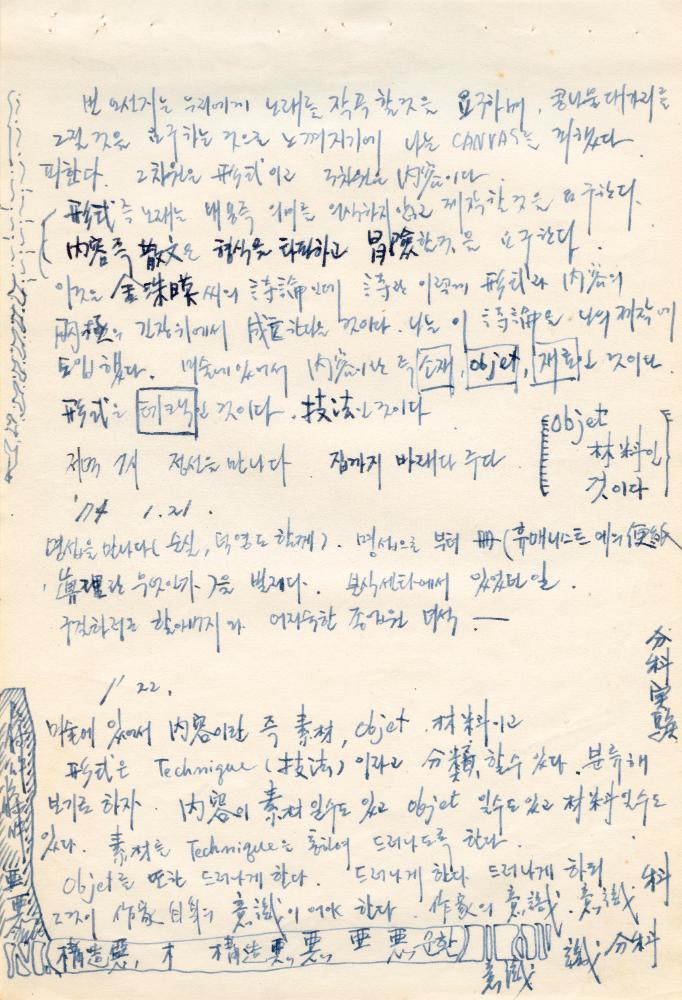 빈 오선지는 우리에게 노래를 작곡할것을 요구하며, 콩나물대가리를
그릴것을 요구하는 것으로 느껴지기에 나는 CANVAS를 피했다
피한다. 2차원은 形式이고 3차원은 內容이다
形式즉 노래는 내용즉 의미를 의식하지않고 제작할것을 요구한다.
內容즉 散文은 형식을 타파하고 冒險할것을 요구한다.
이것은 金洙暎씨의 詩論인데 詩란 이렇게 形式과 內容의
兩極의 긴장위에서 成立한다는 것이다. 나는 이 詩論을 나의 제작에
도입했다. 미술에있어서 內容이란 즉 소재, objet, 재료인 것이다.
形式은 테크닉인 것이다. 技法인것이다
objet
材料인
것이다
저녁 7시 정선을 만나다 집까지 바래다 주다
'74 1. 21.
명섭을 만나다( 순실, 덕영도 함께). 명섭으로 부터 冊(휴매니스트에의 便紙
眞理란 무엇인가)을 빌리다. 분식센타에서 있었던일.
구걸하러온 할아버지와 어리숙한 종업원 녀석 —
1/ 22.
미술에 있어서 內容이란 즉 素材, objet, 材料이고
形式은 Technique (技法) 이라고 分類할수 있다. 분류해
보기로 하자. 內容이 素材일수도 있고 objet 일수도 있고 材料일수도
있다. 素材를 Technique을 통하여 드러나도록 한다.
objet를 또한 드러나게 한다. 드러나게 한다 드러나게 하되
그것이 作家自身의 意識이어야 한다. 作家의 意識. 意識
構造惡, 構造惡 惡 亞 惡
意識 識 分科 科
分科実験